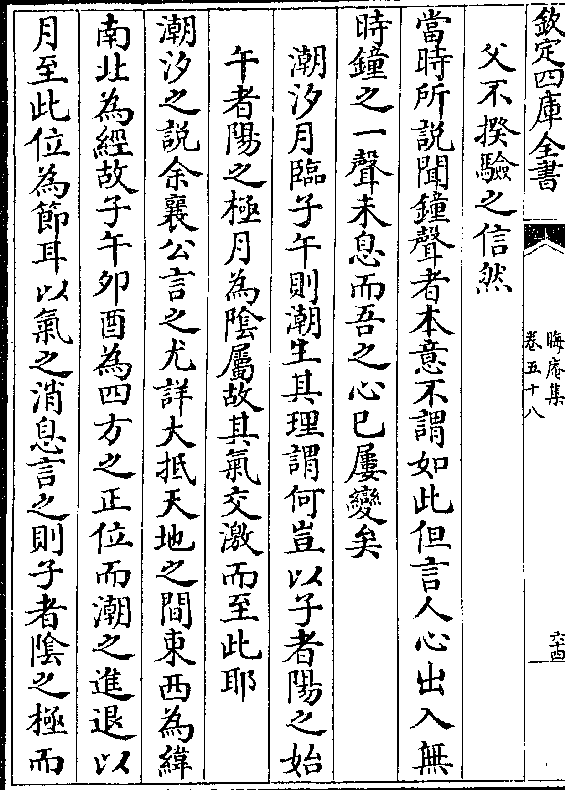 欽定四庫全書
晦庵集
卷五十八
六十四
父不揆驗之信然
當時所說聞鐘聲者本意不謂如此但言人心出入無
時鐘之一聲未息而吾之心已屢變矣
潮汐月臨子午則潮生其理謂何豈以子者陽之始
午者陽之極月為陰屬故其氣交激而至此耶
潮汐之說余襄公言之尤詳大抵天地之間東西為緯
南北為經故子午夘酉為四方之正位而潮之進退以
月至此位為節耳以氣之消息言之則子者隂之極而